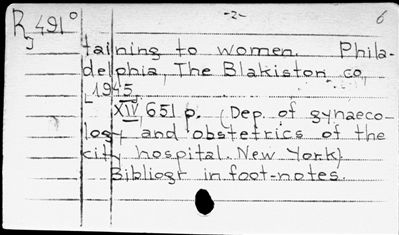 R 491° -2- 6
J
taining to women. Phila-
delphia, The Blakiston co,
1945.
XIV, 651 p. (Dep. of gynaeco-
logy and obstetrics of the
city hospital. New York)
Bibliogr in foot-notes.